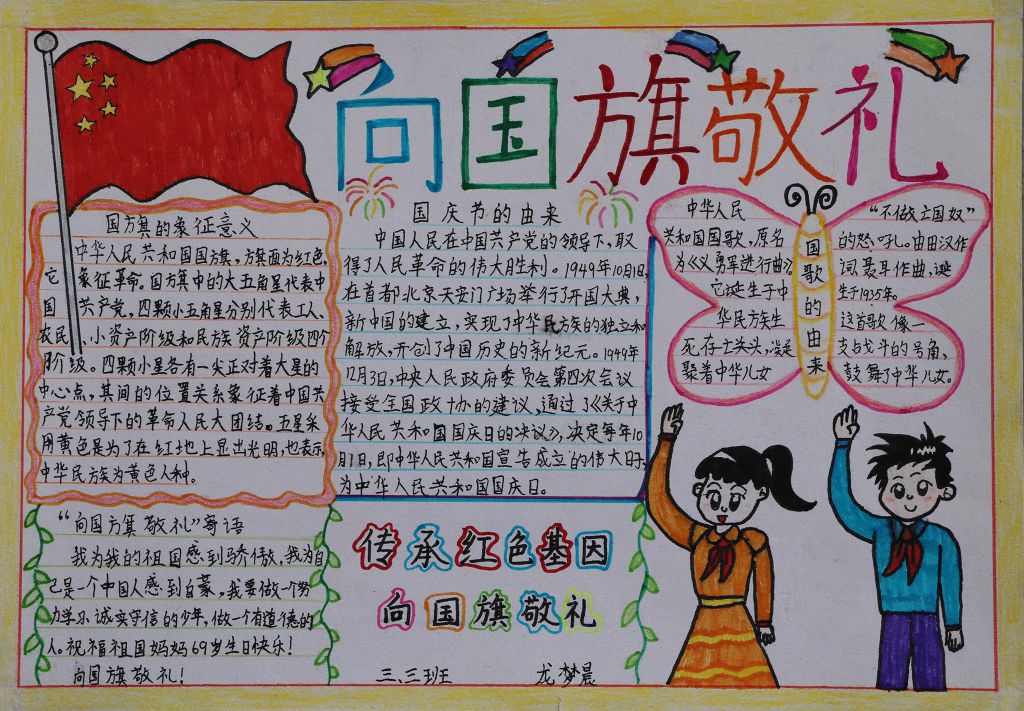 向国旗敬礼
国旗的象征意义
中华人民共和国国旗，旗面为红色，
它象征革命。国旗中的大五角星代表中
国共产党，四颗小五角星分别代表工人、
农民、小资产阶级和民族资产阶级四个
阶级。四颗小星各有一尖正对着大星的
中心点，其间的位置关系象征着中国共
产党领导下的革命人民大团结。五星采
用黄色是为了在红地上显出光明，也表示
中华民族为黄色人种。
国庆节的由来
中国人民在中国共产党的领导下，取
得了人民革命的伟大胜利。1949年10月1日，
在首都北京天安门广场举行了开国大典，
新中国的建立，实现了中华民族的独立和
解放，开创了中国历史的新纪元。1949年
12月3日，中央人民政府委员会第四次会议
接受全国政协的建议，通过了《关于中
华人民共和国国庆日的决议》，决定每年10
月1日，即中华人民共和国宣告成立的伟大日子，
为中华人民共和国国庆日。
国歌的由来
中华人民
共和国国歌，原名
为《义勇军进行曲》。
它诞生于中
华民族生
死存亡关头，凝
聚着中华儿女
“不做亡国奴”
的怒吼。由田汉作
词聂耳作曲，诞
生于1935年。
这首歌像一
支战斗的号角、
鼓舞了中华儿女。
“向国旗敬礼”寄语
我为我的祖国感到骄傲，我为自
己是一个中国人感到自豪，我要做一个努
力学乐诚实守信的少年，做一个有道德的
人。祝福祖国妈妈69岁生日快乐！
向国旗敬礼！
传承红色基因
向国旗敬礼
三.三班 龙梦晨